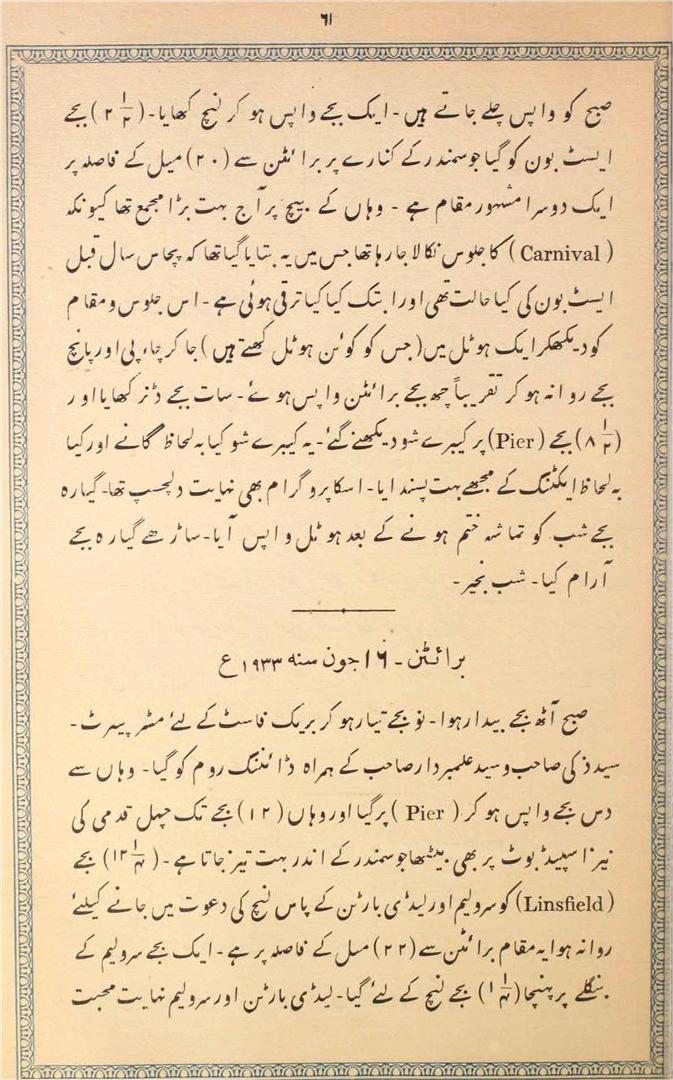 ۶۱
صبح کو واپس چلے جاتے ہیں - ایک بجے واپس ہو کر لنچ کھایا - (۲ ۱/۲) بجے
ایسٹ بون کو گیا جو سمندر کے کنارے پر برائٹن سے (۲۰) میل کے فاصلہ پر
ایک دوسرا مشہور مقام ہے - وہاں کے بیچ پر آج بہت بڑا مجمع تھا کیونکہ
(Carnival) کا جلوس نکالا جا رہا تھا جس میں یہ بتایا گیا تھا کہ پچاس سال قبل
ایسٹ بون کی کیا حالت تھی اور ابتک کیا کیا ترقی ہوئی ہے - اس جلوس و مقام
کو دیکھکر ایک ہوٹل میں (جس کو کوئن ہوٹل کہتے ہیں) جا کر چاء پی اور پانچ
بجے روانہ ہو کر تقریباً چھ بجے برائٹن واپس ہوئے - سات بجے ڈنر کھایا اور
(۸ ۱/۲) بجے (Pier) پر کیبرے شو دیکھنے گئے - یہ کیبرے شو کیا بہ لحاظ گانے اور کیا
بہ لحاظ ایکٹنگ کے مجھے بہت پسند ایا - اسکا پروگرام بھی نہایت دلچسپ تھا - گیارہ
بجے شب کو تماشہ ختم ہونے کے بعد ہوٹل واپس آیا - ساڑھے گیارہ بجے
آرام کیا - شب بخیر -
برائٹن - ۱۶ جون سنہ ۱۹۳۳ ع
صبح آٹھ بجے بیدار ہوا - نو بجے تیار ہو کر بریک فاسٹ کے لئے مسٹر پیرٹ -
سید ذکی صاحب و سید علمبردار صاحب کے ہمراہ ڈائننگ روم کو گیا - وہاں سے
دس بجے واپس ہو کر (Pier) پر گیا اور وہاں (۱۲) بجے تک چہل قدمی کی
نیز اسپیڈ بوٹ پر بھی بیٹھا جو سمندر کے اندر بہت تیز جاتا ہے - (۱۲ ۱/۴) بجے
(Linsfield) کو سر ولیم اور لیڈی بارٹن کے پاس لنچ کی دعوت میں جانے کیلئے
روانہ ہوا یہ مقام برائٹن سے (۲۲) میل کے فاصلہ پر ہے - ایک بجے سر ولیم کے
بنگلے پر پہنچا (۱ ۱/۴) بجے لنچ کے لئے گیا - لیڈی بارٹن اور سر ولیم نہایت محبت